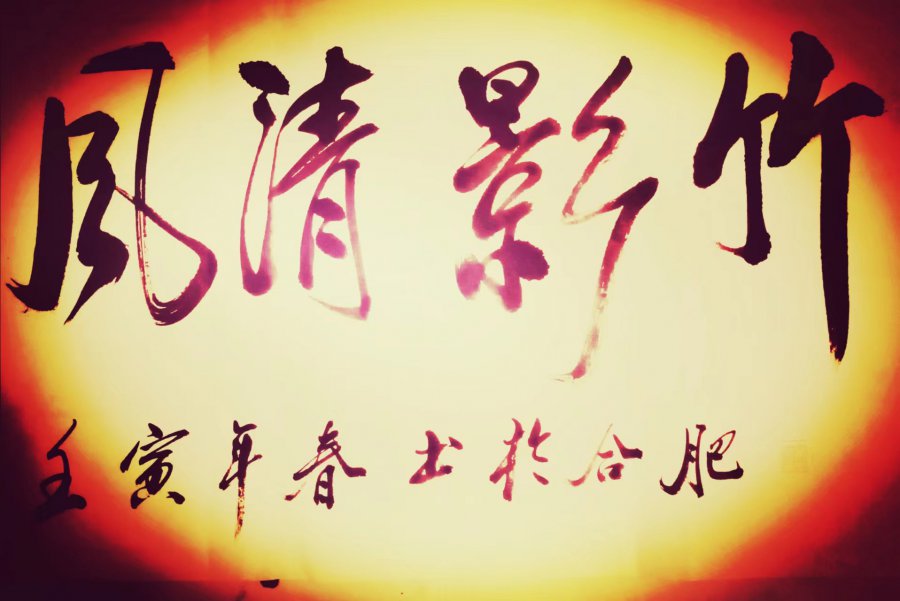 竹影清風
壬寅年春书於合肥